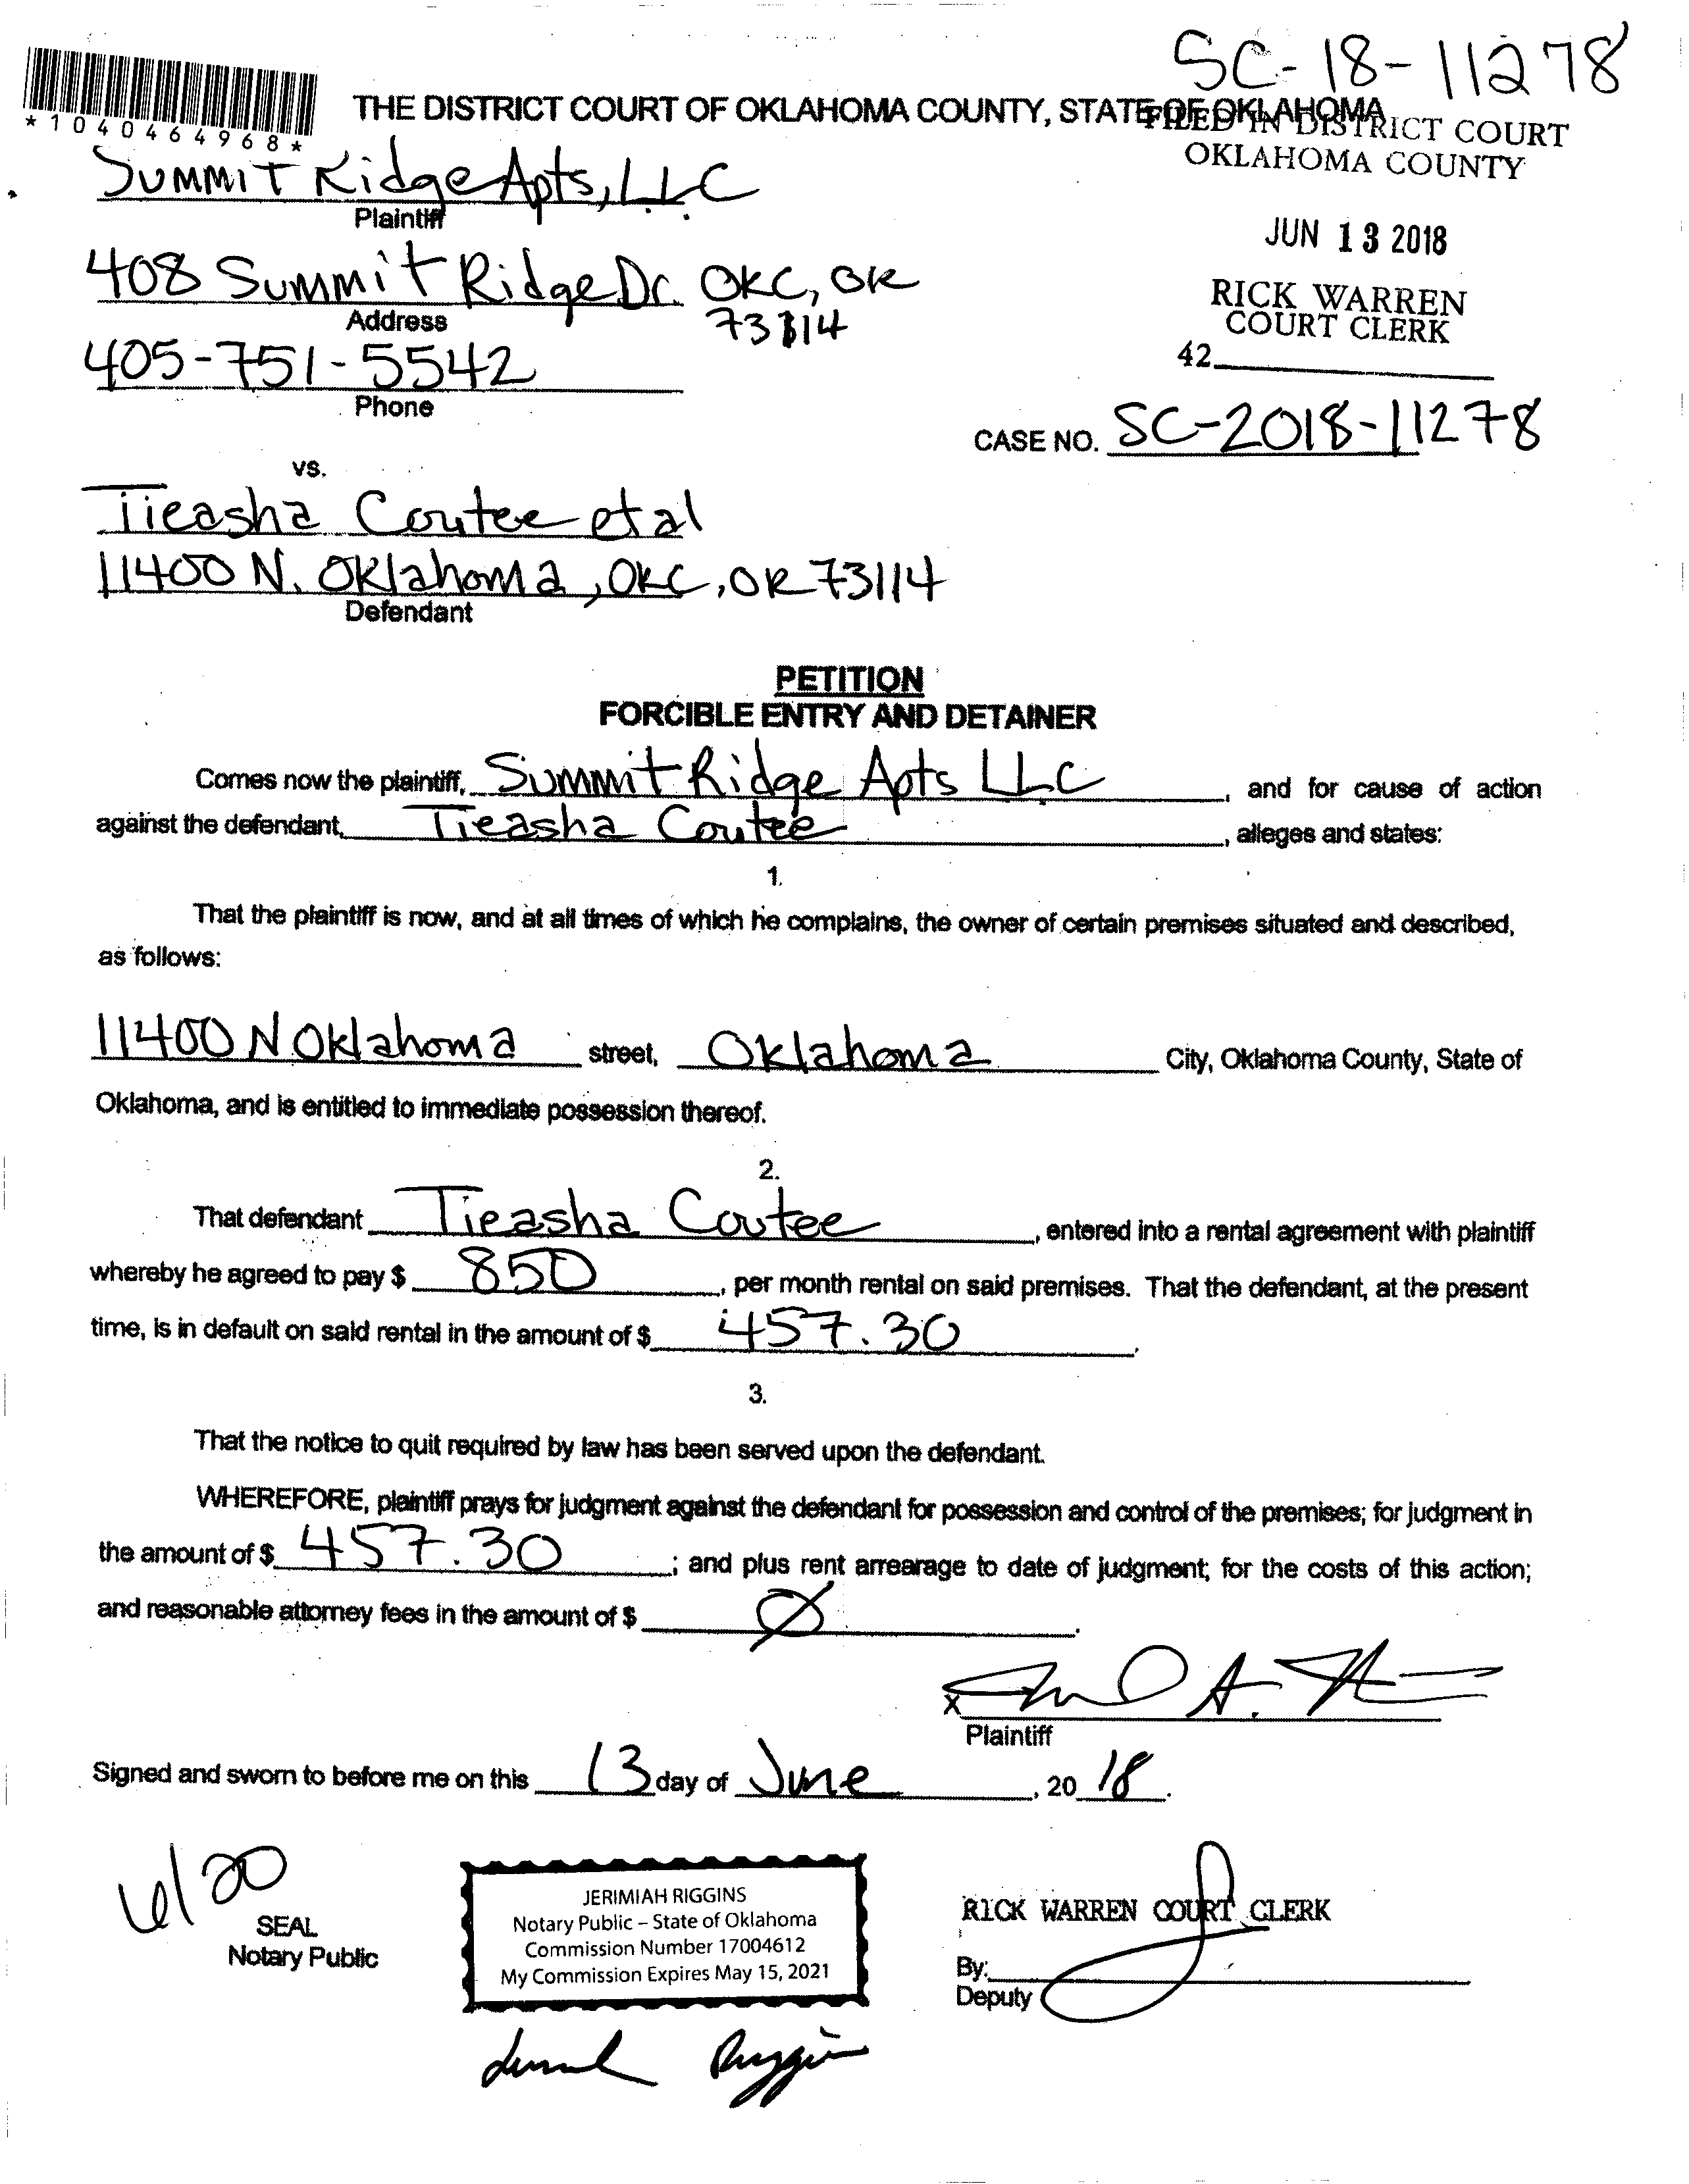 SC-18-11278
*1040464968*
THE DISTRICT COURT OF OKLAHOMA COUNTY, STATE OF OKLAHOMA
FILED IN DISTRICT COURT
OKLAHOMA COUNTY
Summit Ridge Apts, L.L.C
Plaintiff
JUN 13 2018
408 Summit Ridge Dr. OKC, OK
73114
Address
RICK WARREN
COURT CLERK
42
405-751-5542
Phone
CASE NO. SC-2018-11278
vs.
Tieasha Coutee et al
11400 N. Oklahoma, OKC, OK 73114
Defendant
PETITION
FORCIBLE ENTRY AND DETAINER
Comes now the plaintiff, Summit Ridge Apts LLC, and for cause of action
against the defendant, Tieasha Coutee, alleges and states:
1.
That the plaintiff is now, and at all times of which he complains, the owner of certain premises situated and described,
as follows:
11400 N Oklahoma street, Oklahoma City, Oklahoma County, State of
Oklahoma, and is entitled to immediate possession thereof.
2.
That defendant Tieasha Coutee, entered into a rental agreement with plaintiff
whereby he agreed to pay $ 850, per month rental on said premises. That the defendant, at the present
time, is in default on said rental in the amount of $ 457.30.
3.
That the notice to quit required by law has been served upon the defendant.
WHEREFORE, plaintiff prays for judgment against the defendant for possession and control of the premises; for judgment in
the amount of $ 457.30; and plus rent arrearage to date of judgment; for the costs of this action;
and reasonable attorney fees in the amount of $ Ø.
x
Plaintiff
Signed and sworn to before me on this 13 day of June, 2018.
6/20
SEAL
Notary Public
JERIMIAH RIGGINS
Notary Public – State of Oklahoma
Commission Number 17004612
My Commission Expires May 15, 2021
RICK WARREN COURT CLERK
By:
Deputy